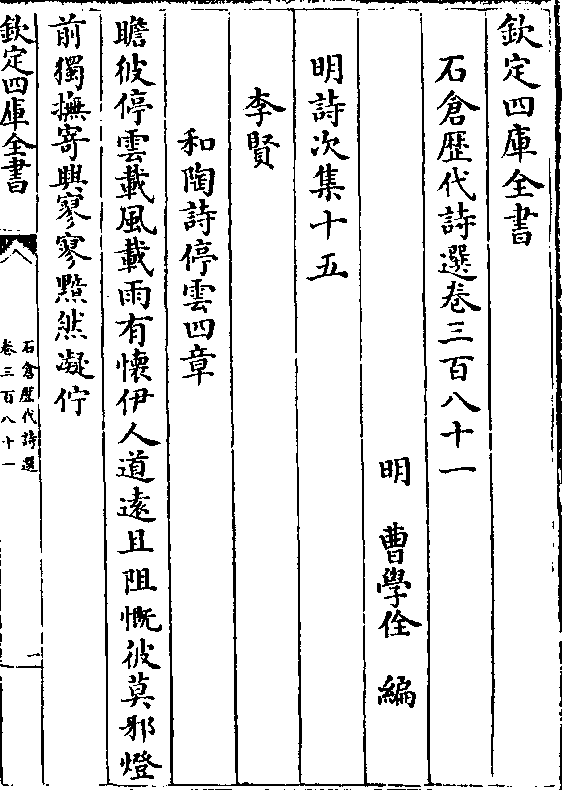 欽定四庫全書
石倉歴代詩選卷三百八十一
明 曹學佺 編
明詩次集十五
李賢
和陶詩停雲四章
瞻彼停雲載風載雨有懷伊人道遠且阻慨彼莫邪燈
前獨撫寄興寥寥黯然凝佇
欽定四庫全書
石倉歴代詩選
卷三百八十一
一